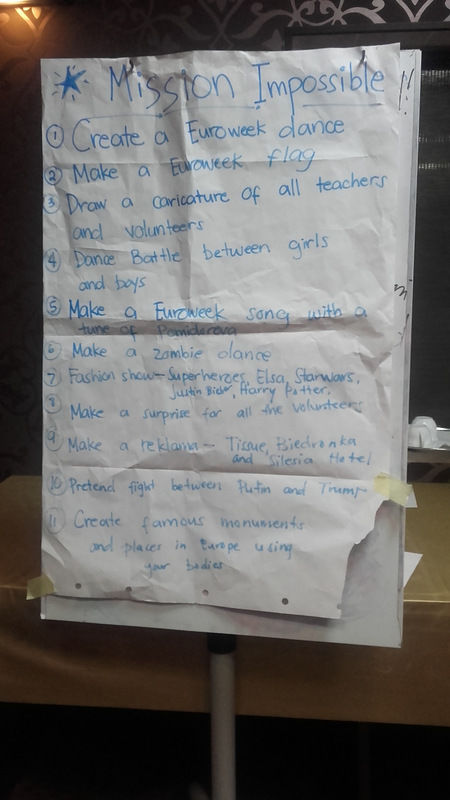 Mission Impossible
1 Create a Euroweek dance
2 Make a Euroweek flag
3 Draw a caricature of all teachers
and volunteers
4 Dance Battle between girls
and boys
5 Make a Euroweek song with a
tune of Pamidorova
6 Make a zombie dance
7 Fashion show - Superheroes, Elsa, Starwars,
Justin Bieber, Harry Potter,
8 Make a surprise for all the volunteers
9 Make a reklama - Tissue, Biedronka
and Silesia Hotel
10 Pretend fight between Putin and Trump
11 Create famous monuments
and places in Europe using
your bodies